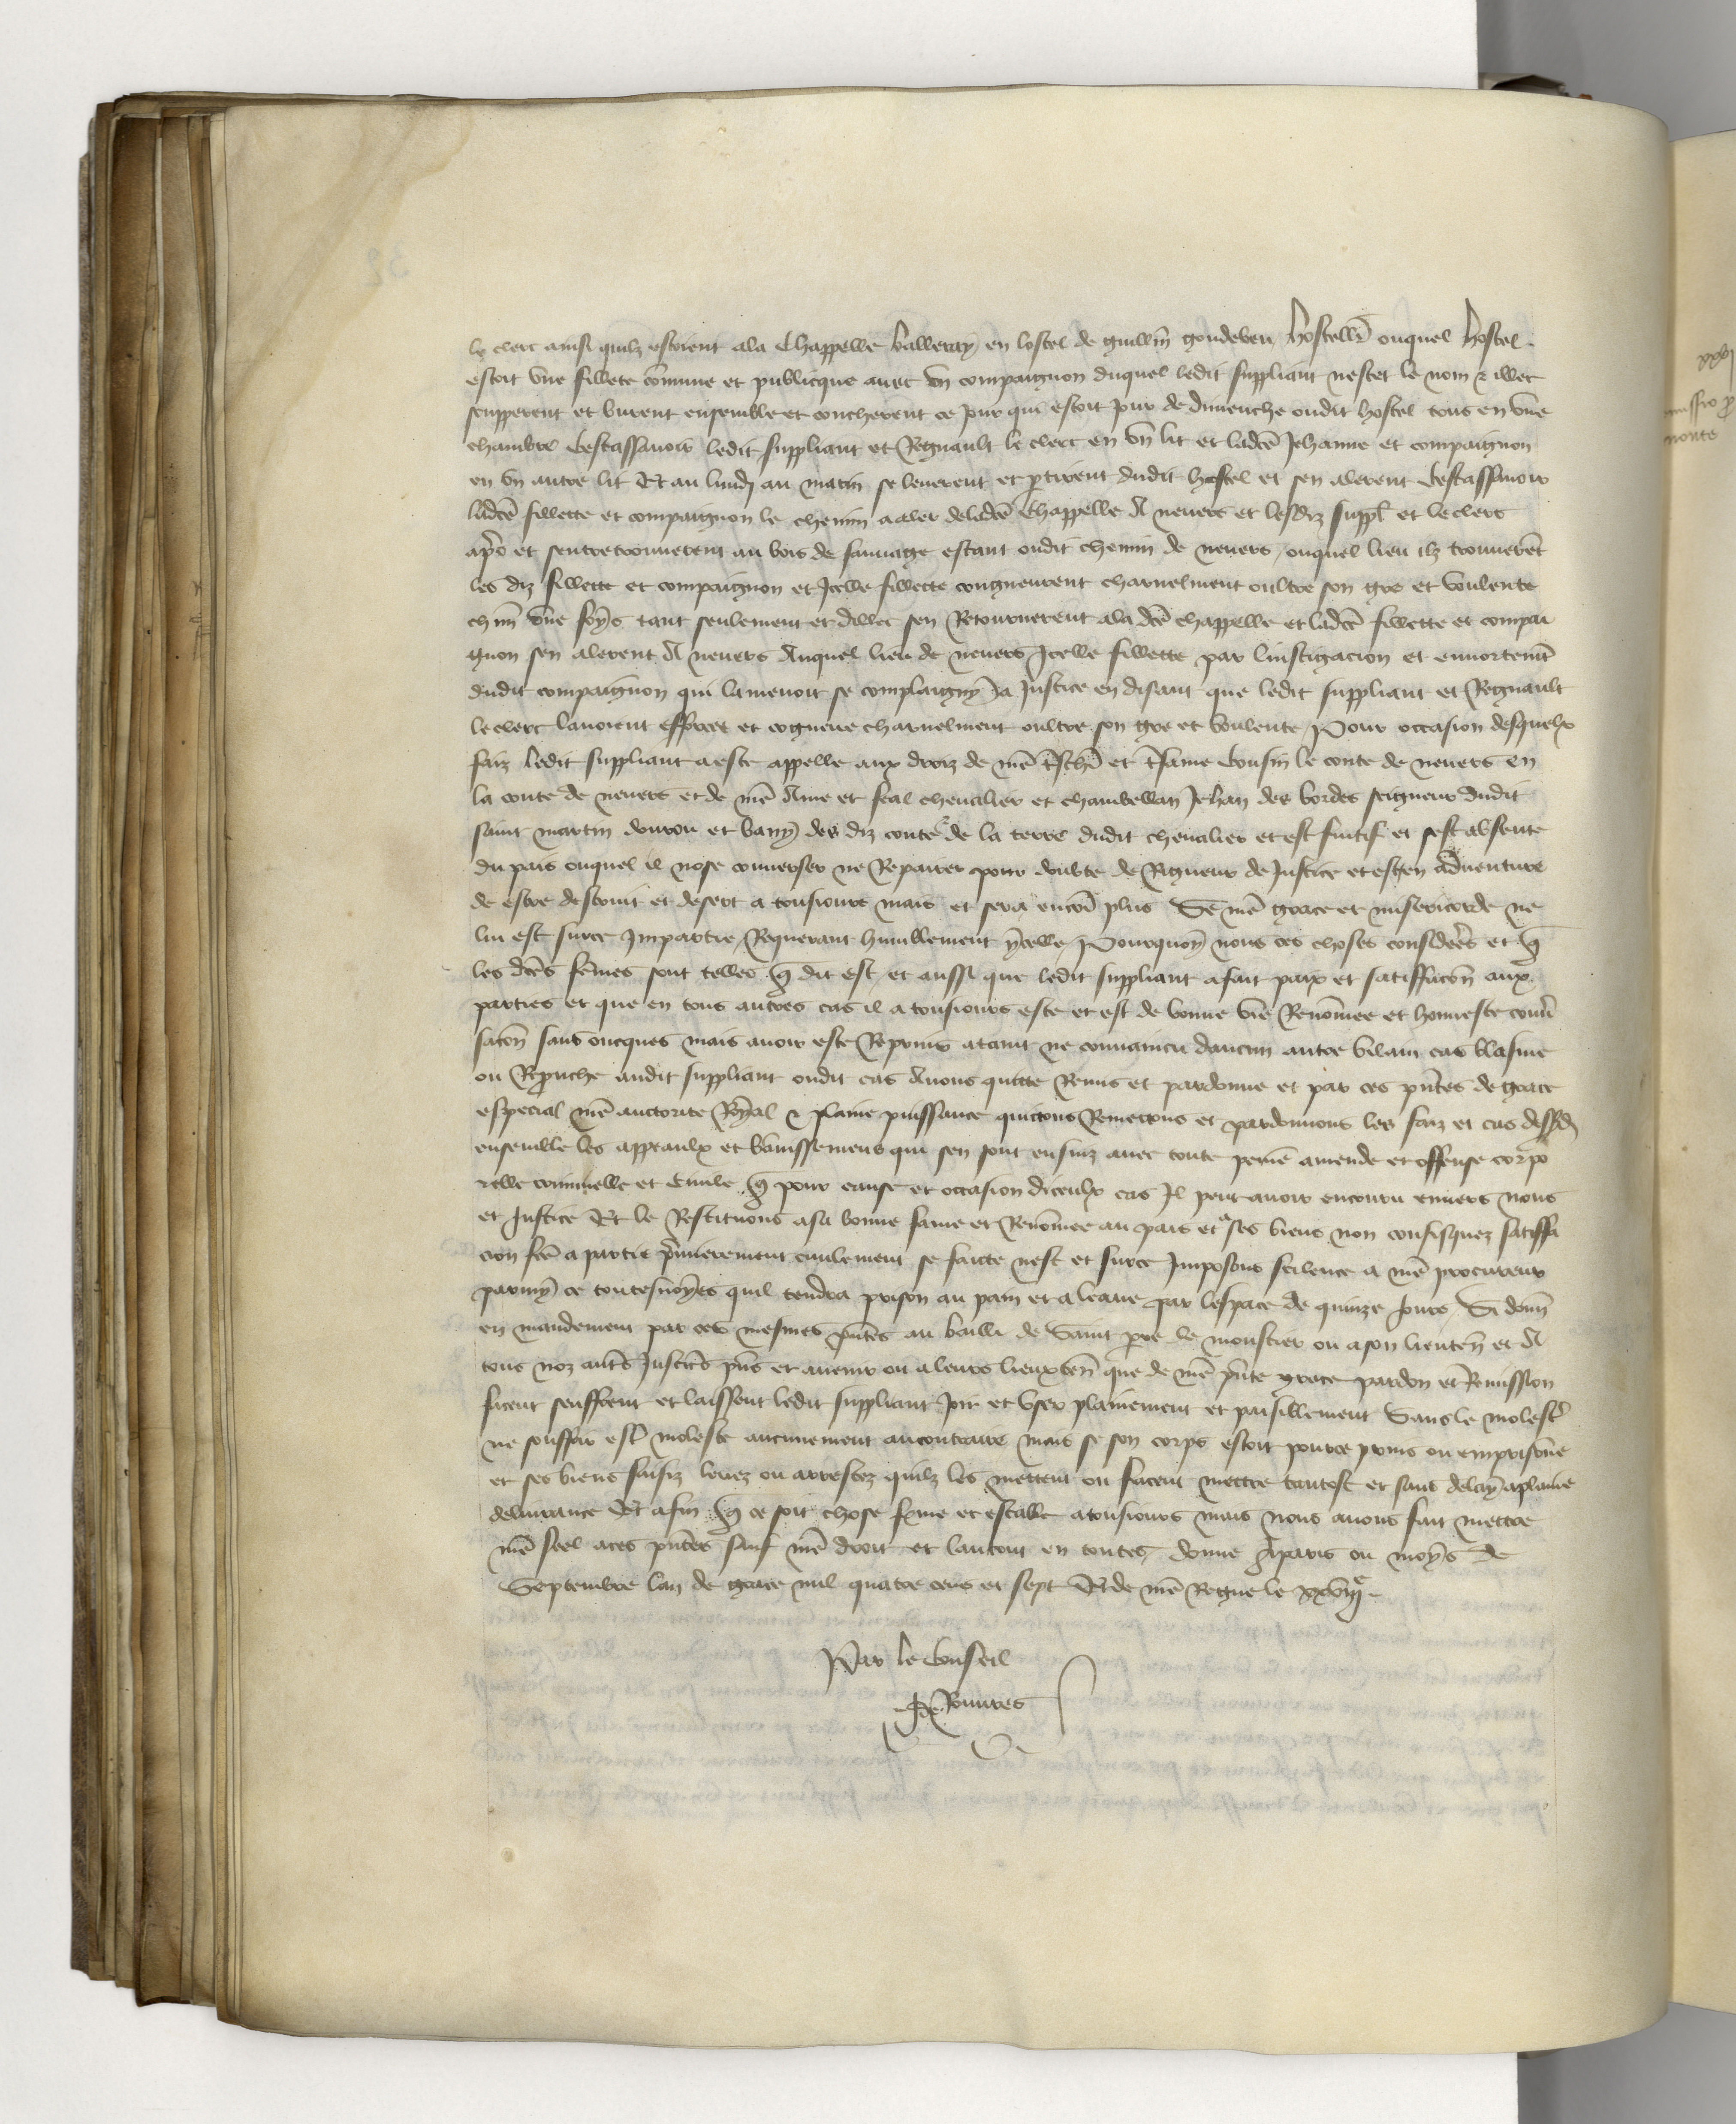 le clerc ainsi quilz estoient ala Chappelle balleray en lostel de guillm goudebeu hostellr ouquel hostel
estoit vne fillete cōmune et publicque auec vn compaignon duquel ledit suppliant nescet le nom & illec
soupperent et burent ensemble et coucherent ce jour qui estoit jour de dimenche oudit hostel tous en vne
chambre Cestassauoir ledit suppliant et Regnault le clerc en vn lit et ladcē Jehanne et compaignon
en vn autre lit Et au lundj au matin se leuerent et ptirent dudit hostel et sen alerent Cestassauoir
ladcē fillette et compaignon le chemin a aler deladcē Chappelle A neuers et lesdiz suppl et le clerc
apēs et sentretrouuerent au bois de sauuage estant oudit chemin de neuers, ouquel lieu ilz trouuerēt
les diz fillette et compaignon et Icelle fillette congneurent charnelment oultre son gre et voulente
chūn vne foys tant seulement et dillec sen Retournerent ala dcē chappelle et ladcē fillette et compai
gnon sen alerent A neuers Auquel lieu de neuers Icelle fillette par linstigacion et enortemēt
dudit compaignon qui lamenoit se complaigny Ja Justice en disant que ledit suppliant et Regnault
le clerc lauoient efforcee et cogneue charnelment oultre son gre et voulente Pour occasion desquelx
faiz ledit suppliant a este appelle aux droiz de nrē tschr et tsame Cousin le conte de neuers en
la conte de neuers et de nrē Ame et feal cheualier et chambellan Jehan des bordes seigneur dudit
saint martin et bany des diz conte & de la terre dudit cheualier et est fuitif et sest absente
du pais ouquel il nose conuerser ne Repairer pour doubte de Rigueur de Justice et est en aduenture
de estre destruit et desert a tousiours mais et sera encor plus Se nrē grace et misericorde ne
lui est surce Impartie, Requerant humblement ycelle, Pourquoy nous ces choses considērs et q̄
les dcēs fēmes sont telles q̄ dit est, et aussi que ledit suppliant a fait paix et satisfacōn aux
parties et que en tous autres cas il a tousiours este et est de bonne vie Renōmee et honneste conūr
sacōn sans oncques mais auoir este Reprins ataint ne conuaincu daucun autre vilain cas blasme
ou Reprouche audit suppliant oudit cas Auons quitte Remis et pardonne et par ces pn̄tes de grace
especial nrē auctorite Royal & plaine puissance quictons Remectons et pardonnons les faiz et cas dessusd
ensemble les appeaulx et banissemens qui sen sont ensuiz auec toute peine amende et offense corpo
relle criminelle et Ciuile q̄ pour cause et occasion diceulx cas Il peut auoir encouru enuers nous
et Justice Et le Restituons asa bonne fame et Renōmee au pais et a ses biens non confisquez satiffa
cion fcē a partie pr̄mierement ciuilement se faicte nest et surce Imposons scilence a nrē procureur
parmy ce toutesuoyes quil tendra prison au pain et a leaue par lespace de quinze jours, Si donn̄
en mandement par ces mesmes pn̄tes au bailli de Saint pre le moustier ou a son lieuten̄ et A
tous noz aut̄s Justicrs pn̄s et auenir ou a leurs lieuxten̄ que de nrē pn̄te grace pardon et Remission
facent seuffrent et laissent ledit suppliant Joir et vser plainement et paisiblement Sans le molestr
ne souffrir estr moleste aucunement aucontraire mais se son corps estoit pource prins ou emprisōne
et ses biens saisiz leuez ou arrestez quilz les mettent ou facent mettre tantost et sans delay aplaine
deliurance Et afin q̄ ce soit chose ferme et estable atousiours mais Nous auons fait mettre
nrē seel aces pn̄tes sauf nrē droit et lautrui en toutes, donne A paris ou moys de
Septembre lan de grace mil quatre cens et sept Et de nrē Regne le xxviij e
Par le Conseil